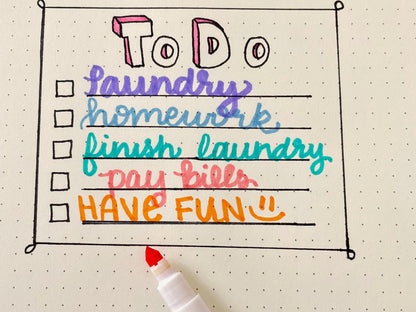 To Do
laundry
homework
finish laundry
pay bills
HAVE FUN